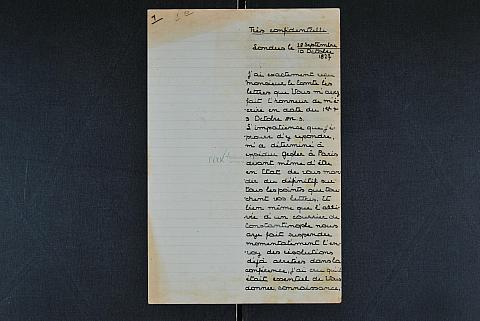 1
Très confidentielle
Londres le 28 Septembre
10 Octobre
1827
J'ai exactement reçu
monsieur le Comte les
lettres que Vous m'avez
fait l'honneur de m'é-
crire en date du 1er &
3 Octobre n. s.
L'impatience que j'é-
prouve d'y répondre,
m'a déterminé à
expédier Gesler à Paris
avant même d'être
en Etat de vous man-
der du définitif sur
tous les points que tou-
chent vos lettres. Et
bien même que l'arri-
vée d'un courrier de
Constantinople nous
aye fait suspendre
momentatement l'en-
voy des résolutions
déjà arretées dans la
conférence, j'ai cru qu'il
était essentiel de Vous
donner connaissance,